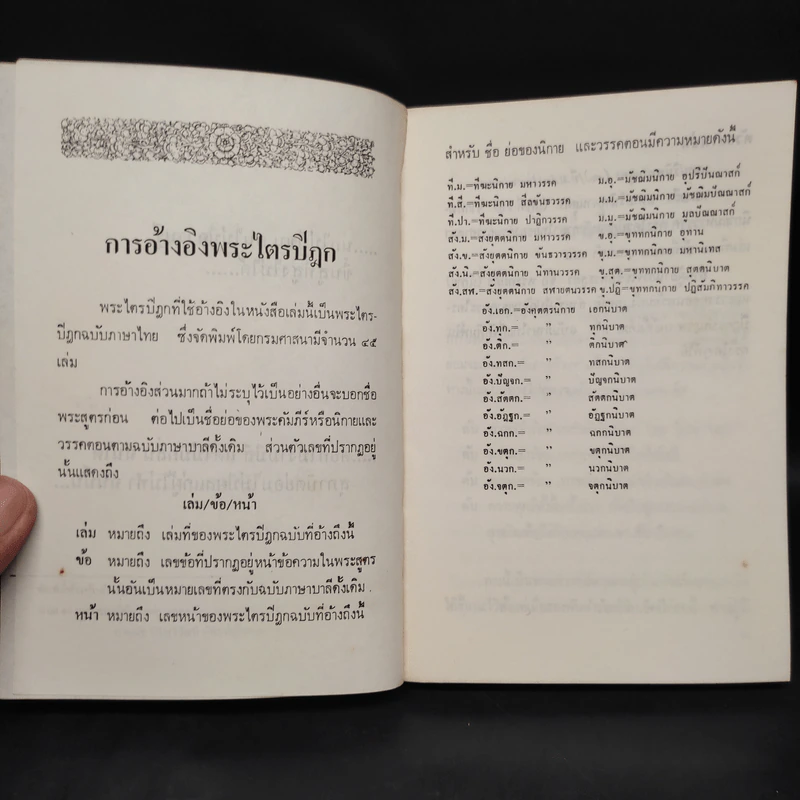 การอ้างอิงพระไตรปิฎก
พระไตรปิฎกที่ใช้อ้างอิงในหนังสือเล่มนี้เป็นพระไตร-
ปิฎกฉบับภาษาไทย ซึ่งจัดพิมพ์โดยกรมศาสนามีจำนวน ๔๕
เล่ม
การอ้างอิงส่วนมากถ้าไม่ระบุไว้เป็นอย่างอื่นจะบอกชื่อ
พระสูตรก่อน ต่อไปเป็นชื่อย่อของพระคัมภีร์หรือนิกายและ
วรรคตอนตามฉบับภาษาบาลีดั้งเดิม ส่วนตัวเลขที่ปรากฏอยู่
นั้นแสดงถึง
เล่ม/ข้อ/หน้า
เล่ม หมายถึง เล่มที่ของพระไตรปิฎกฉบับที่อ้างถึงนี้
ข้อ หมายถึง เลขข้อที่ปรากฏอยู่หน้าข้อความในพระสูตร
นั้นอันเป็นหมายเลขที่ตรงกับฉบับภาษาบาลีดั้งเดิม.
หน้า หมายถึง เลขหน้าของพระไตรปิฎกฉบับที่อ้างถึงนี้
สำหรับ ชื่อ ย่อของนิกาย และวรรคตอนมีความหมายดังนี้
ที.ม.=ทีฆะนิกาย มหาวรรค ม.อุ.=มัชฌิมนิกาย อุปริปัณณาสก์
ที.สี.=ทีฆะนิกาย สีลขันธวรรค ม.ม.=มัชฌิมนิกาย มัชฌิมปัณณาสก์
ที.ปา.=ทีฆะนิกาย ปาฏิกวรรค ม.มู.=มัชฌิมนิกาย มูลปัณณาสก์
สัง.ม.=สังยุตตนิกาย มหาวรรค ขุ.อุ.=ขุททกนิกาย อุทาน
สัง.ข.=สังยุตตนิกาย ขันธวารวรรค ขุ.ม.=ขุททกนิกาย มหานิเทส
สัง.นิ.=สังยุตตนิกาย นิทานวรรค ขุ.สุต.=ขุททกนิกาย สุตตนิบาต
สัง.สฬ.=สังยุตตนิกาย สฬายตนวรรค ขุ.ปฏิ=ขุททกนิกาย ปฏิสัมภิทาวรรค
อัง.เอก.=อังคุตตรนิกาย เอกนิบาต
อัง.ทุก.= " ทุกนิบาต
อัง.ติก.= " ติกนิบาต
อัง.ทสก.= " ทสกนิบาต
อัง.ปัญจก.= " ปัญจกนิบาต
อัง.สัตตก.= " สัตตกนิบาต
อัง.อัฏฐก.= " อัฏฐกนิบาต
อัง.ฉกก.= " ฉกกนิบาต
อัง.จตุก.= " จตุกนิบาต
อัง.นวก.= " นวกนิบาต
อัง.จตุก.= " จตุกนิบาต